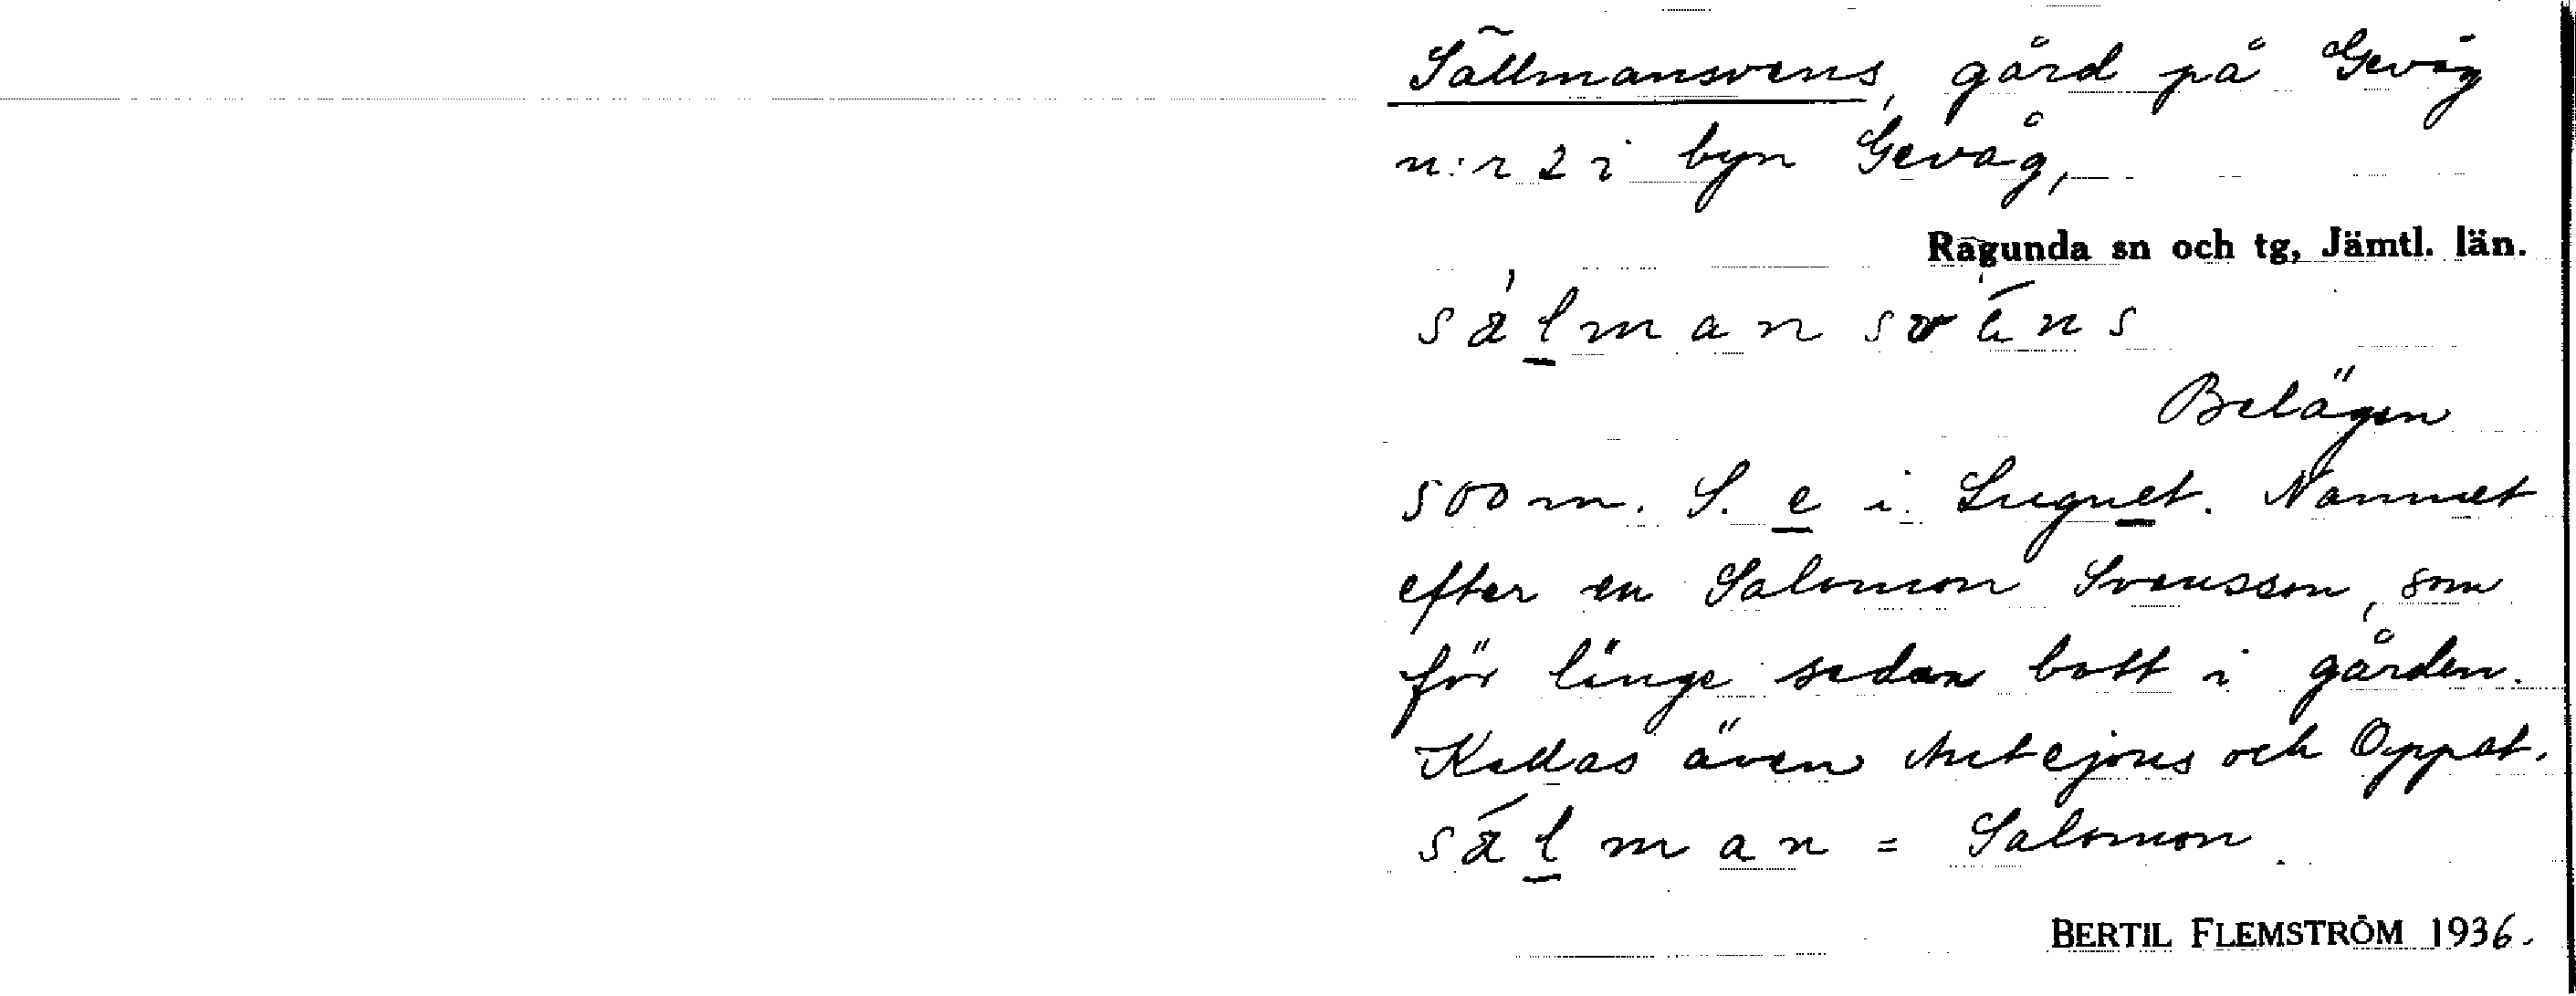 Sãllmansvens, gård på Gevåg
n:r 2 i byn Gevåg,
Ragunda sn och tg, Jämtl. län.
Belägen
500 m. S. e i Lugnet. Namnet
efter en Salomon Svensson, som
för länge sedan bott i gården.
Kallas även Antejons och Oppat.
sálman = Salomon.
BERTIL FLEMSTRÖM 1936.